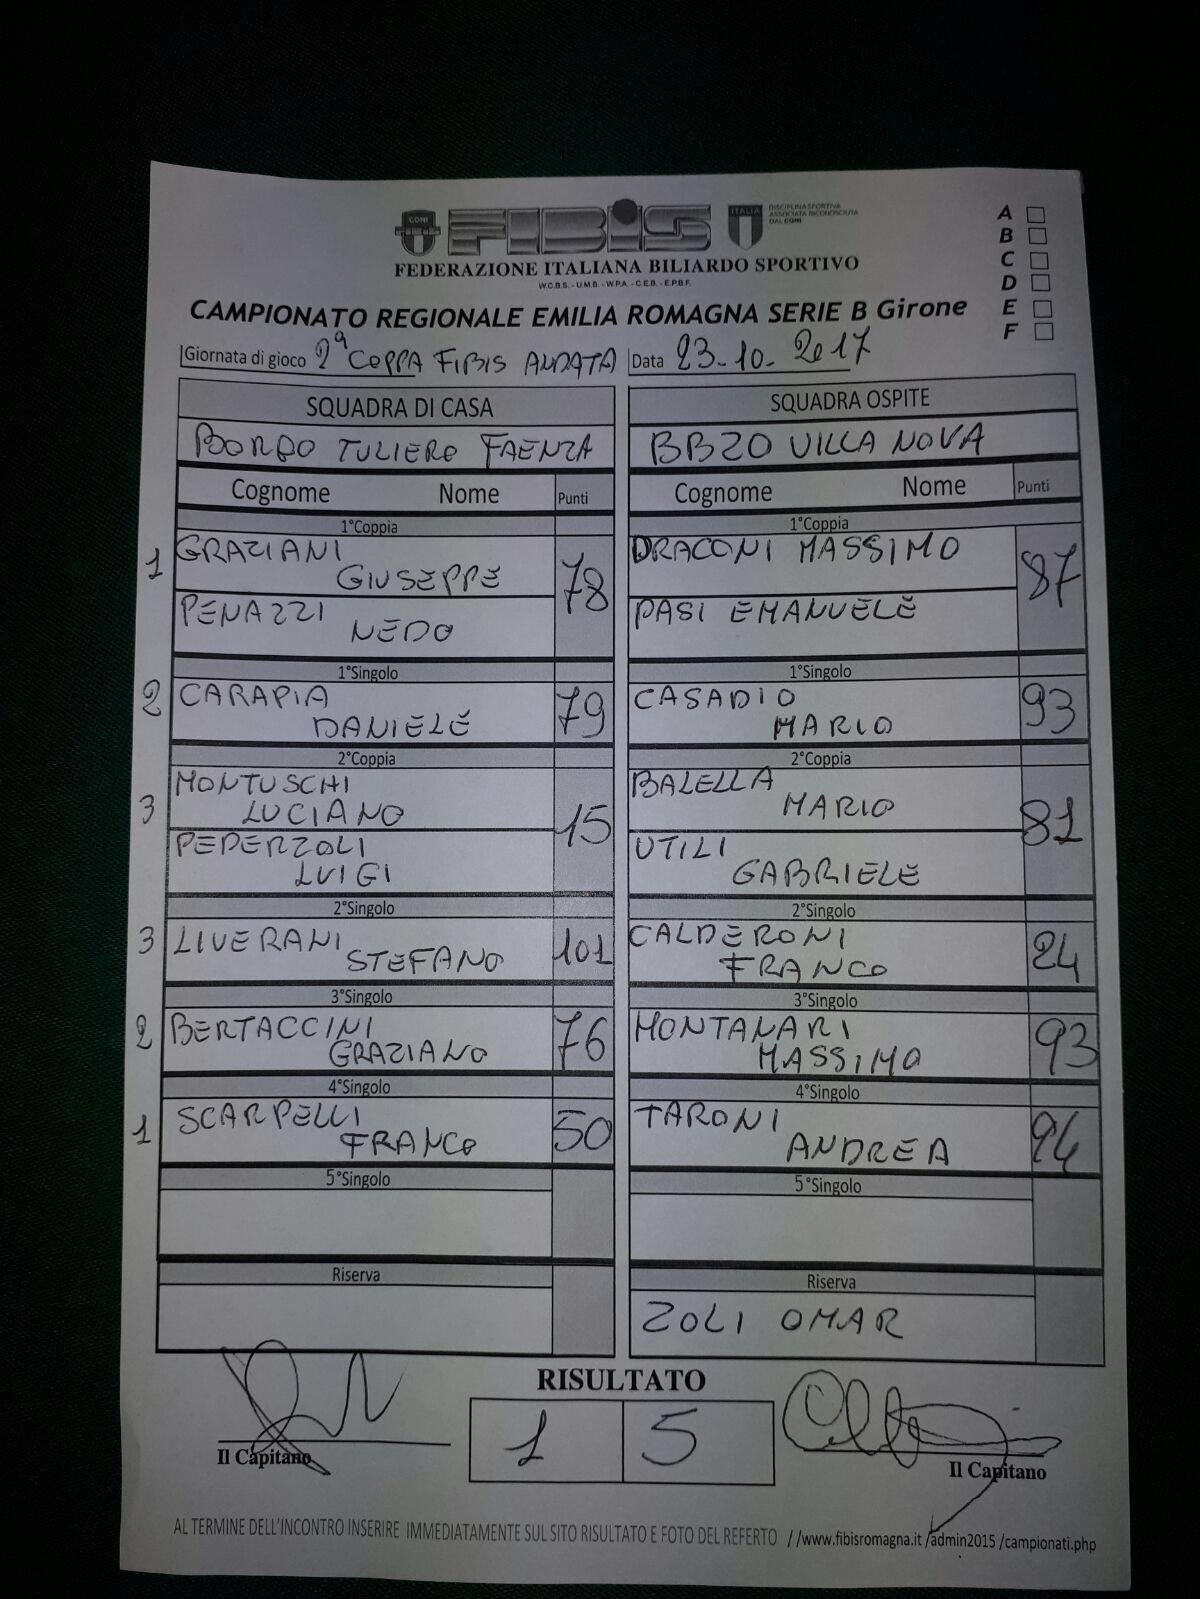 CONI
FIBIS
ITALIA
DISCIPLINA SPORTIVA
ASSOCIATA RICONOSCIUTA
DAL CONI
FEDERAZIONE ITALIANA BILIARDO SPORTIVO
W.C.B.S. - U.M.B. - W.P.A. - C.E.B. - E.P.B.F.
A
B
C
D
E
F
CAMPIONATO REGIONALE EMILIA ROMAGNA SERIE B Girone
Giornata di gioco 2ª COPPA FIBIS ANDATA Data 23-10-2017
SQUADRA DI CASA SQUADRA OSPITE
BORGO TULIERO FAENZA BBZO VILLANOVA
Cognome Nome Punti Cognome Nome Punti
1°Coppia 1°Coppia
1 GRAZIANI GIUSEPPE 78 DRACONI MASSIMO 87
PENAZZI NEDO PASI EMANUELE
1°Singolo 1°Singolo
2 CARAPIA DANIELE 79 CASADIO MARIO 93
2°Coppia 2°Coppia
3 MONTUSCHI LUCIANO 15 BALELLA MARIO 81
PEDERZOLI LUIGI UTILI GABRIELE
2°Singolo 2°Singolo
3 LIVERANI STEFANO 101 CALDERONI FRANCO 24
3°Singolo 3°Singolo
2 BERTACCINI GRAZIANO 76 MONTANARI MASSIMO 93
4°Singolo 4°Singolo
1 SCARPELLI FRANCO 50 TARONI ANDREA 94
5°Singolo 5°Singolo
Riserva Riserva
ZOLI OMAR
RISULTATO
1 5
Il Capitano Il Capitano
AL TERMINE DELL'INCONTRO INSERIRE IMMEDIATAMENTE SUL SITO RISULTATO E FOTO DEL REFERTO //www.fibisromagna.it /admin2015 /campionati.php